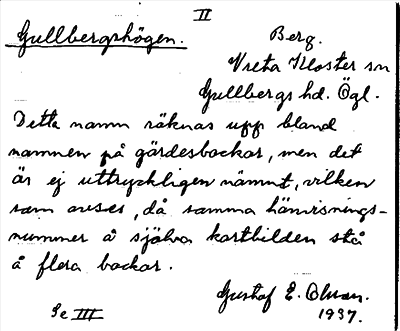 II
Gullbergshögen.
Berg.
Vreta Kloster sn
Gullbergs hd. Ögl.
Detta namn räknas upp bland
namnen på gärdesbackar, men det
är ej uttryckligen nämnt, vilken
som avses, då samma hänvisnings-
nummer å själva kartbilden stå
å flera backar.
Gustaf E. Olsson.
1937.
Se III